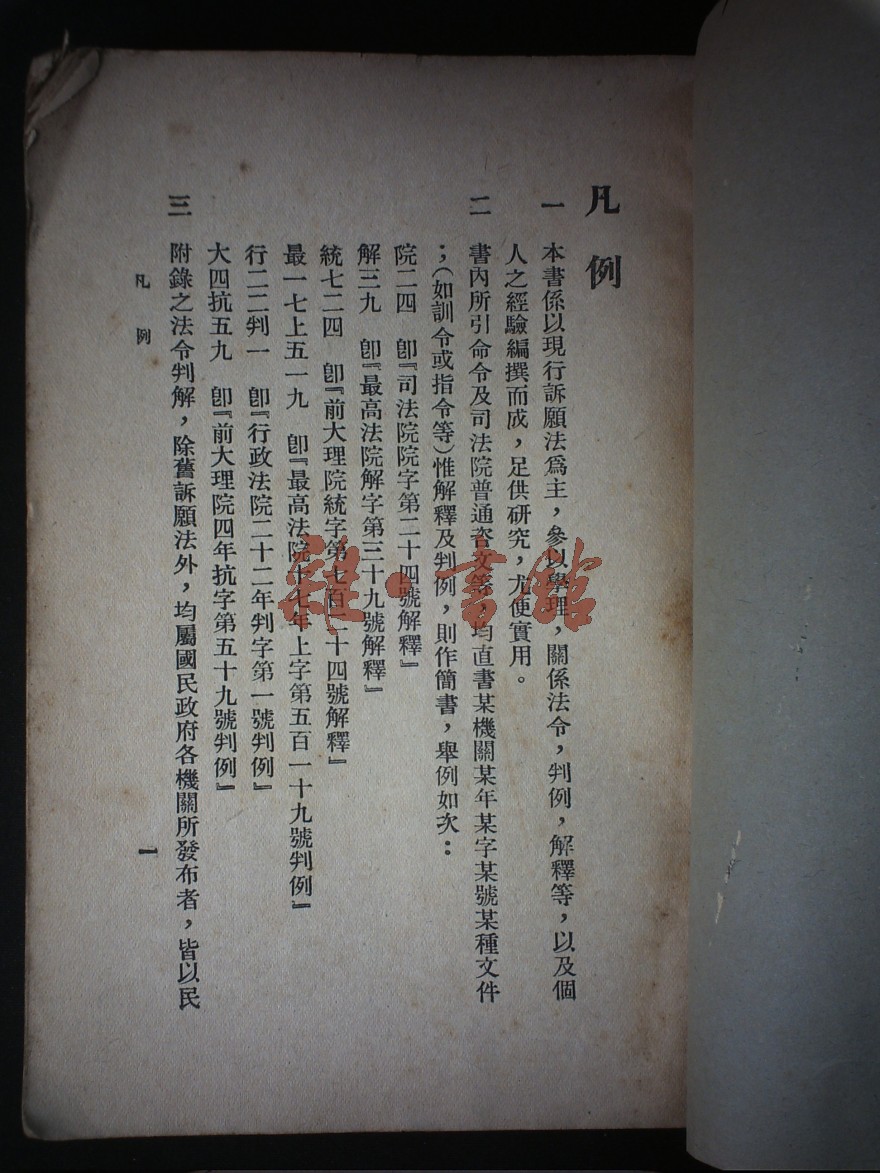 凡例
一 本書係以現行訴願法爲主，參以學理，關係法令，判例，解釋等，以及個
人之經驗編撰而成，足供研究，尤便實用。
二 書內所引命令及司法院普通咨文等，均直書某機關某年某字某號某種文件
；(如訓令或指令等)惟解釋及判例，則作簡書，舉例如次：
院二四 卽『司法院院字第二十四號解釋』
解三九 卽『最高法院解字第三十九號解釋』
統七二四 卽『前大理院統字第七百二十四號解釋』
最一七上五一九 卽『最高法院十七年上字第五百一十九號判例』
行二二判一 卽『行政法院二十二年判字第一號判例』
大四抗五九 卽『前大理院四年抗字第五十九號判例』
三 附錄之法令判解，除舊訴願法外，均屬國民政府各機關所發布者，皆以民
凡例 一
雜·書館